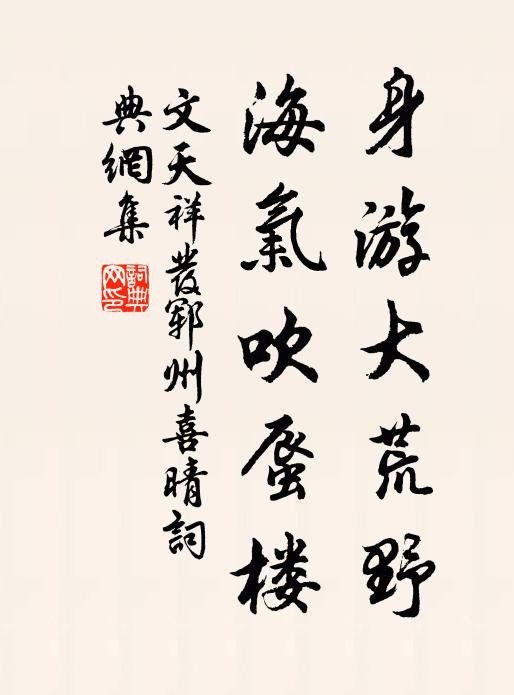 身游大荒野
海氣吹蜃楼
文天祥發鄆州喜晴詞
典網集
詞典网印